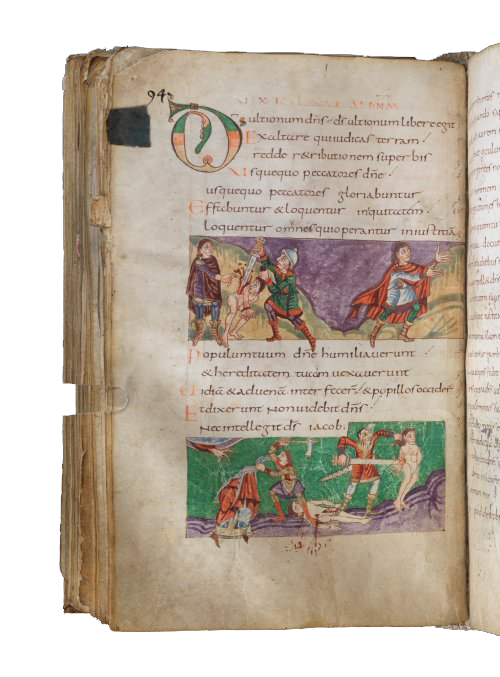 94
Ds ultionum dñs · ds ultionum libere egit
Exaltare qui iudicas terram
redde retributionem superbis
Usquequo peccatores dñe
usquequo peccatores gloriabuntur
Effabuntur & loquentur iniquitatem
loquentur omnes qui operantur iniustitia
Populum tuum dñe humiliaverunt
& hereditatem tuam vexaverunt
& advena interfecer & pupillos occider
Et dixerunt Non videbit dñs
Nec intelleget ds iacob